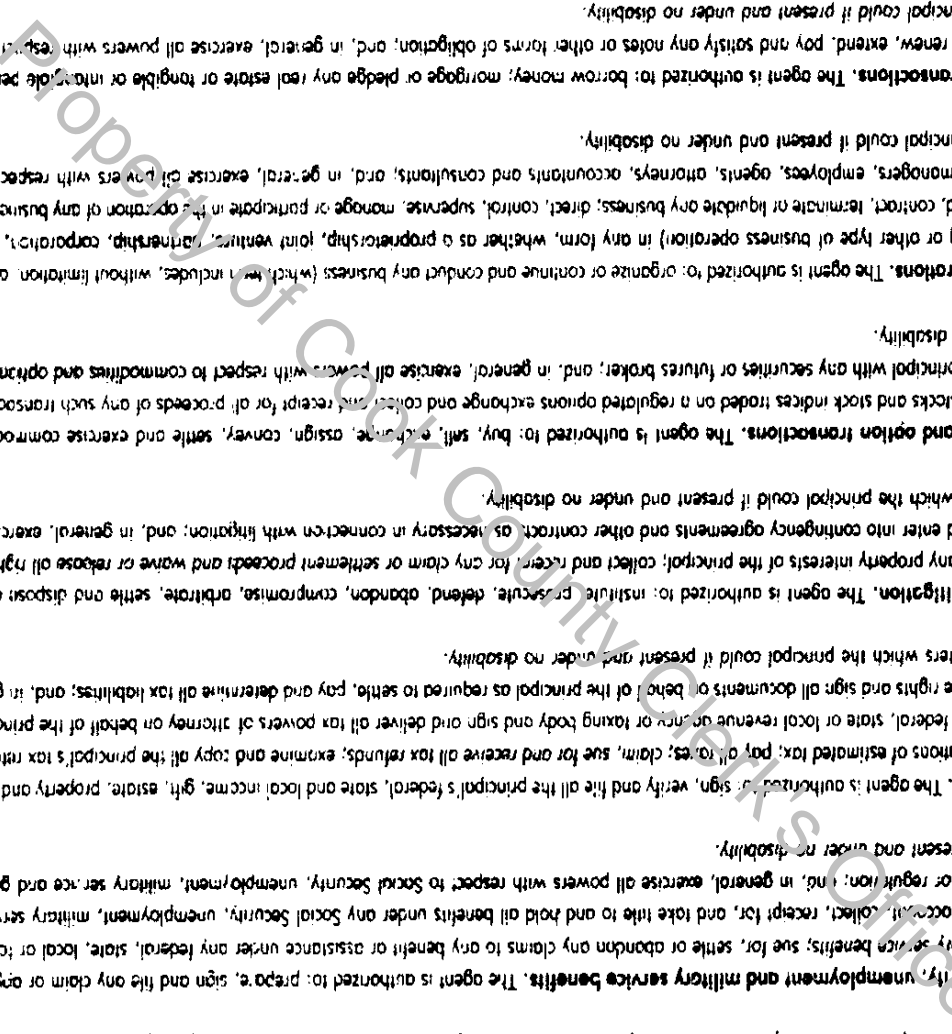 ity, unemployment and military service benefits. The agent is authorized to: prepare, sign and file any claim or app
ry service benefits; sue for, settle or abandon any claims to any benefit or assistance under any federal, state, local or fo
account, collect, receipt for, and take title to and hold all benefits under any Social Security, unemployment, military serv
or regulation; and, in general, exercise all powers with respect to Social Security, unemployment, military service and g
esent and under no disability.
. The agent is authorized to: sign, verify and file all the principal's federal, state and local income, gift, estate, property and
tions of estimated tax; pay all taxes; claim, sue for and receive all tax refunds; examine and copy all the principal's tax retu
federal, state or local revenue agency or taxing body and sign and deliver all tax powers of attorney on behalf of the princ
e rights and sign all documents on behalf of the principal as required to settle, pay and determine all tax liabilities; and, in g
ters which the principal could if present and under no disability.
litigation. The agent is authorized to: institute, prosecute, defend, abandon, compromise, arbitrate, settle and dispose
any property interests of the principal; collect and receipt for any claim or settlement proceeds and waive or release all righ
d enter into contingency agreements and other contracts as necessary in connection with litigation; and, in general, exerc
which the principal could if present and under no disability.
and option transactions. The agent is authorized to: buy, sell, exchange, assign, convey, settle and exercise commod
tocks and stock indices traded on a regulated options exchange and collect and receipt for all proceeds of any such transac
principal with any securities or futures broker; and, in general, exercise all powers with respect to commodities and option
disability.
rations. The agent is authorized to: organize or continue and conduct any business (which term includes, without limitation, a
g or other type of business operation) in any form, whether as a proprietorship, joint venture, partnership, corporation,
d, contract, terminate or liquidate any business; direct, control, supervise, manage or participate in the operation of any busine
managers, employees, agents, attorneys, accountants and consultants; and, in general, exercise all powers with respec
incipal could if present and under no disability.
ransactions. The agent is authorized to: borrow money; mortgage or pledge any real estate or tangible or intangible pe
renew, extend, pay and satisfy any notes or other forms of obligation; and, in general, exercise all powers with respect
ncipal could if present and under no disability.
Property of Cook County Clerk's Office